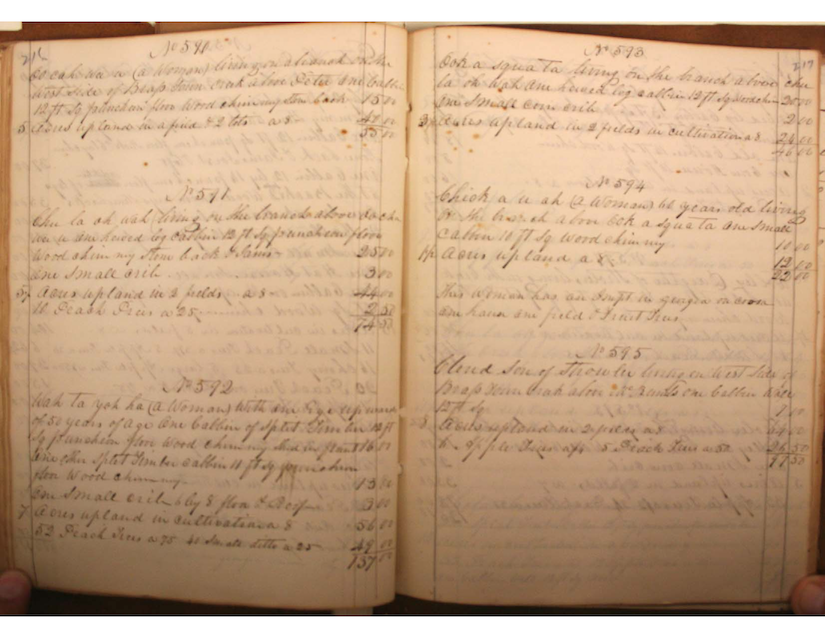 216
No 590
(a Woman) living on a branch on the
West side of town Creek above one Cabbin
12 ft Sq puncheon floor Wood chimny Stone back 15 00
5 Acres upland in a field & 2 lots a 8 40 00
55 00
No 591
Chu la oh wah living on the branch above Co cah
wu u one hewed log cabbin 12 ft Sq puncheon floor
Wood chimny Stone back & 25 00
one Small crib 3 00
5½ Acres upland in 2 fields a 8 44 00
10 Peach Trees a 25 2 50
74 50
No 592
Wah ta yoh ha (a Woman) With one Eye upwards
of 50 years of Age one Cabbin of Split Timber 12 ft
Sq puncheon floor Wood chimny Shed in front 16 00
one other Split Timber Cabbin 11 ft Sq puncheon
floor Wood chimny 13 00
one Small crib 6 by 8 floor & Roof 3 00
7 Acres upland in cultivation a 8 56 00
52 Peach Trees a 75 40 Small ditto a 25 49 00
137 00
217
No 593
Ook a squa ta living on the branch above Chu
la oh wah one hewed log cabbin 12 ft Sq Wood chim 20 00
one Small corn crib 2 00
3 Acres upland in 2 fields in cultivation a 8 24 00
46 00
No 594
Chick a u ah (a Woman) 60 years old living
on the branch above Ook a squa ta one Small
Cabbin 10 ft Sq Wood chimny 10 00
1½ Acres upland a 8 12 00
22 00
This Woman has
one house one field & Fruit Trees
No 595
Cloud Son of living on West Side of
town Creek above one Cabbin
12 ft Sq
Acres upland in 2 pieces a 8
6 Apple Trees 5 Peach Trees a 50 26 50
77 50